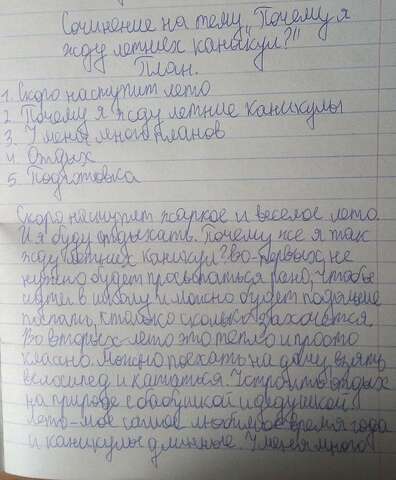 Сочинение на тему „Почему я
жду летних каникул?"
План.
1. Скоро наступит лето
2. Почему я жду летние каникулы
3. У меня много планов
4. Отдых
5. Подготовка
Скоро наступит жаркое и веселое лето.
И я буду отдыхать. Почему же я так
жду летних каникул? Во-первых, не
нужно будет просыпаться рано, чтобы
идти в школу и можно будет подольше
поспать, столько сколько захочется
Во вторых лето это тепло и просто
классно. Можно поехать на дачу взять
велосипед и кататься. Устроить отдых
на природе с бабушкой и дедушкой.
Лето-мое самое любимое время года
и каникулы длинные. У меня много